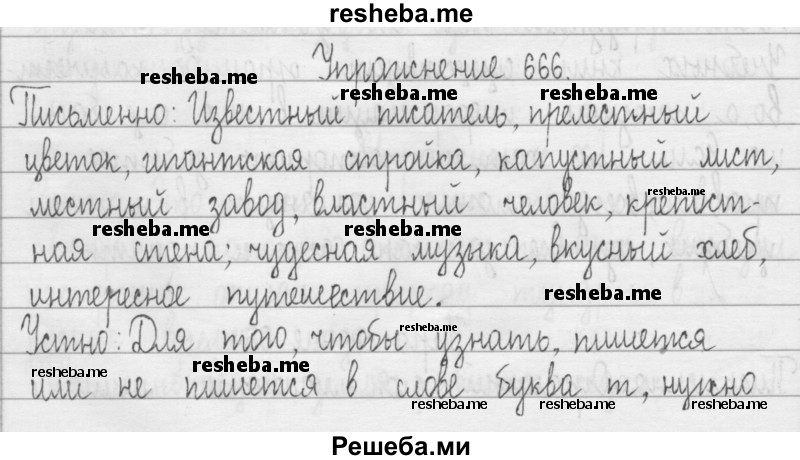 resheba.me
Упражнение 666.
resheba.me resheba.me resheba.me
Письменно: Известный писатель, прелестный
цветок, гигантская стройка, капустный лист,
resheba.me
местный завод, властный человек, крепост-
resheba.me resheba.me
ная стена; чудесная музыка, вкусный хлеб,
интересное путешествие.
resheba.me
resheba.me
Устно: Для того, чтобы узнать, пишется
resheba.me resheba.me
или не пишется в слове буква т, нужно
resheba.me resheba.me resheba.me
Решеба.ми